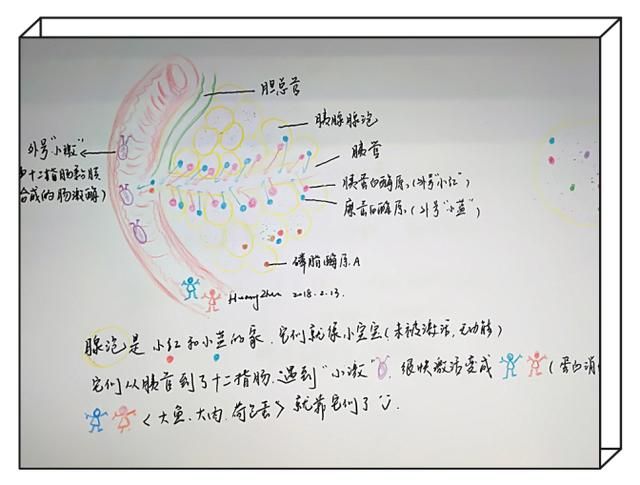 胆总管
胰腺腺泡
外号"小激"
胰管
由十二指肠黏膜
合成的肠激酶)
胰蛋白酶原(外号"小红")
糜蛋白酶原(外号"小蓝")
磷脂酶原A
HuangZhen 2018.2.13.
腺泡是小红和小蓝的家,它们就像小宝宝(未被激活,无功能)
它们从胰管到了十二指肠,遇到"小激",很快激活变成(蛋白消
<大鱼、大肉、荷包蛋>就靠它们了